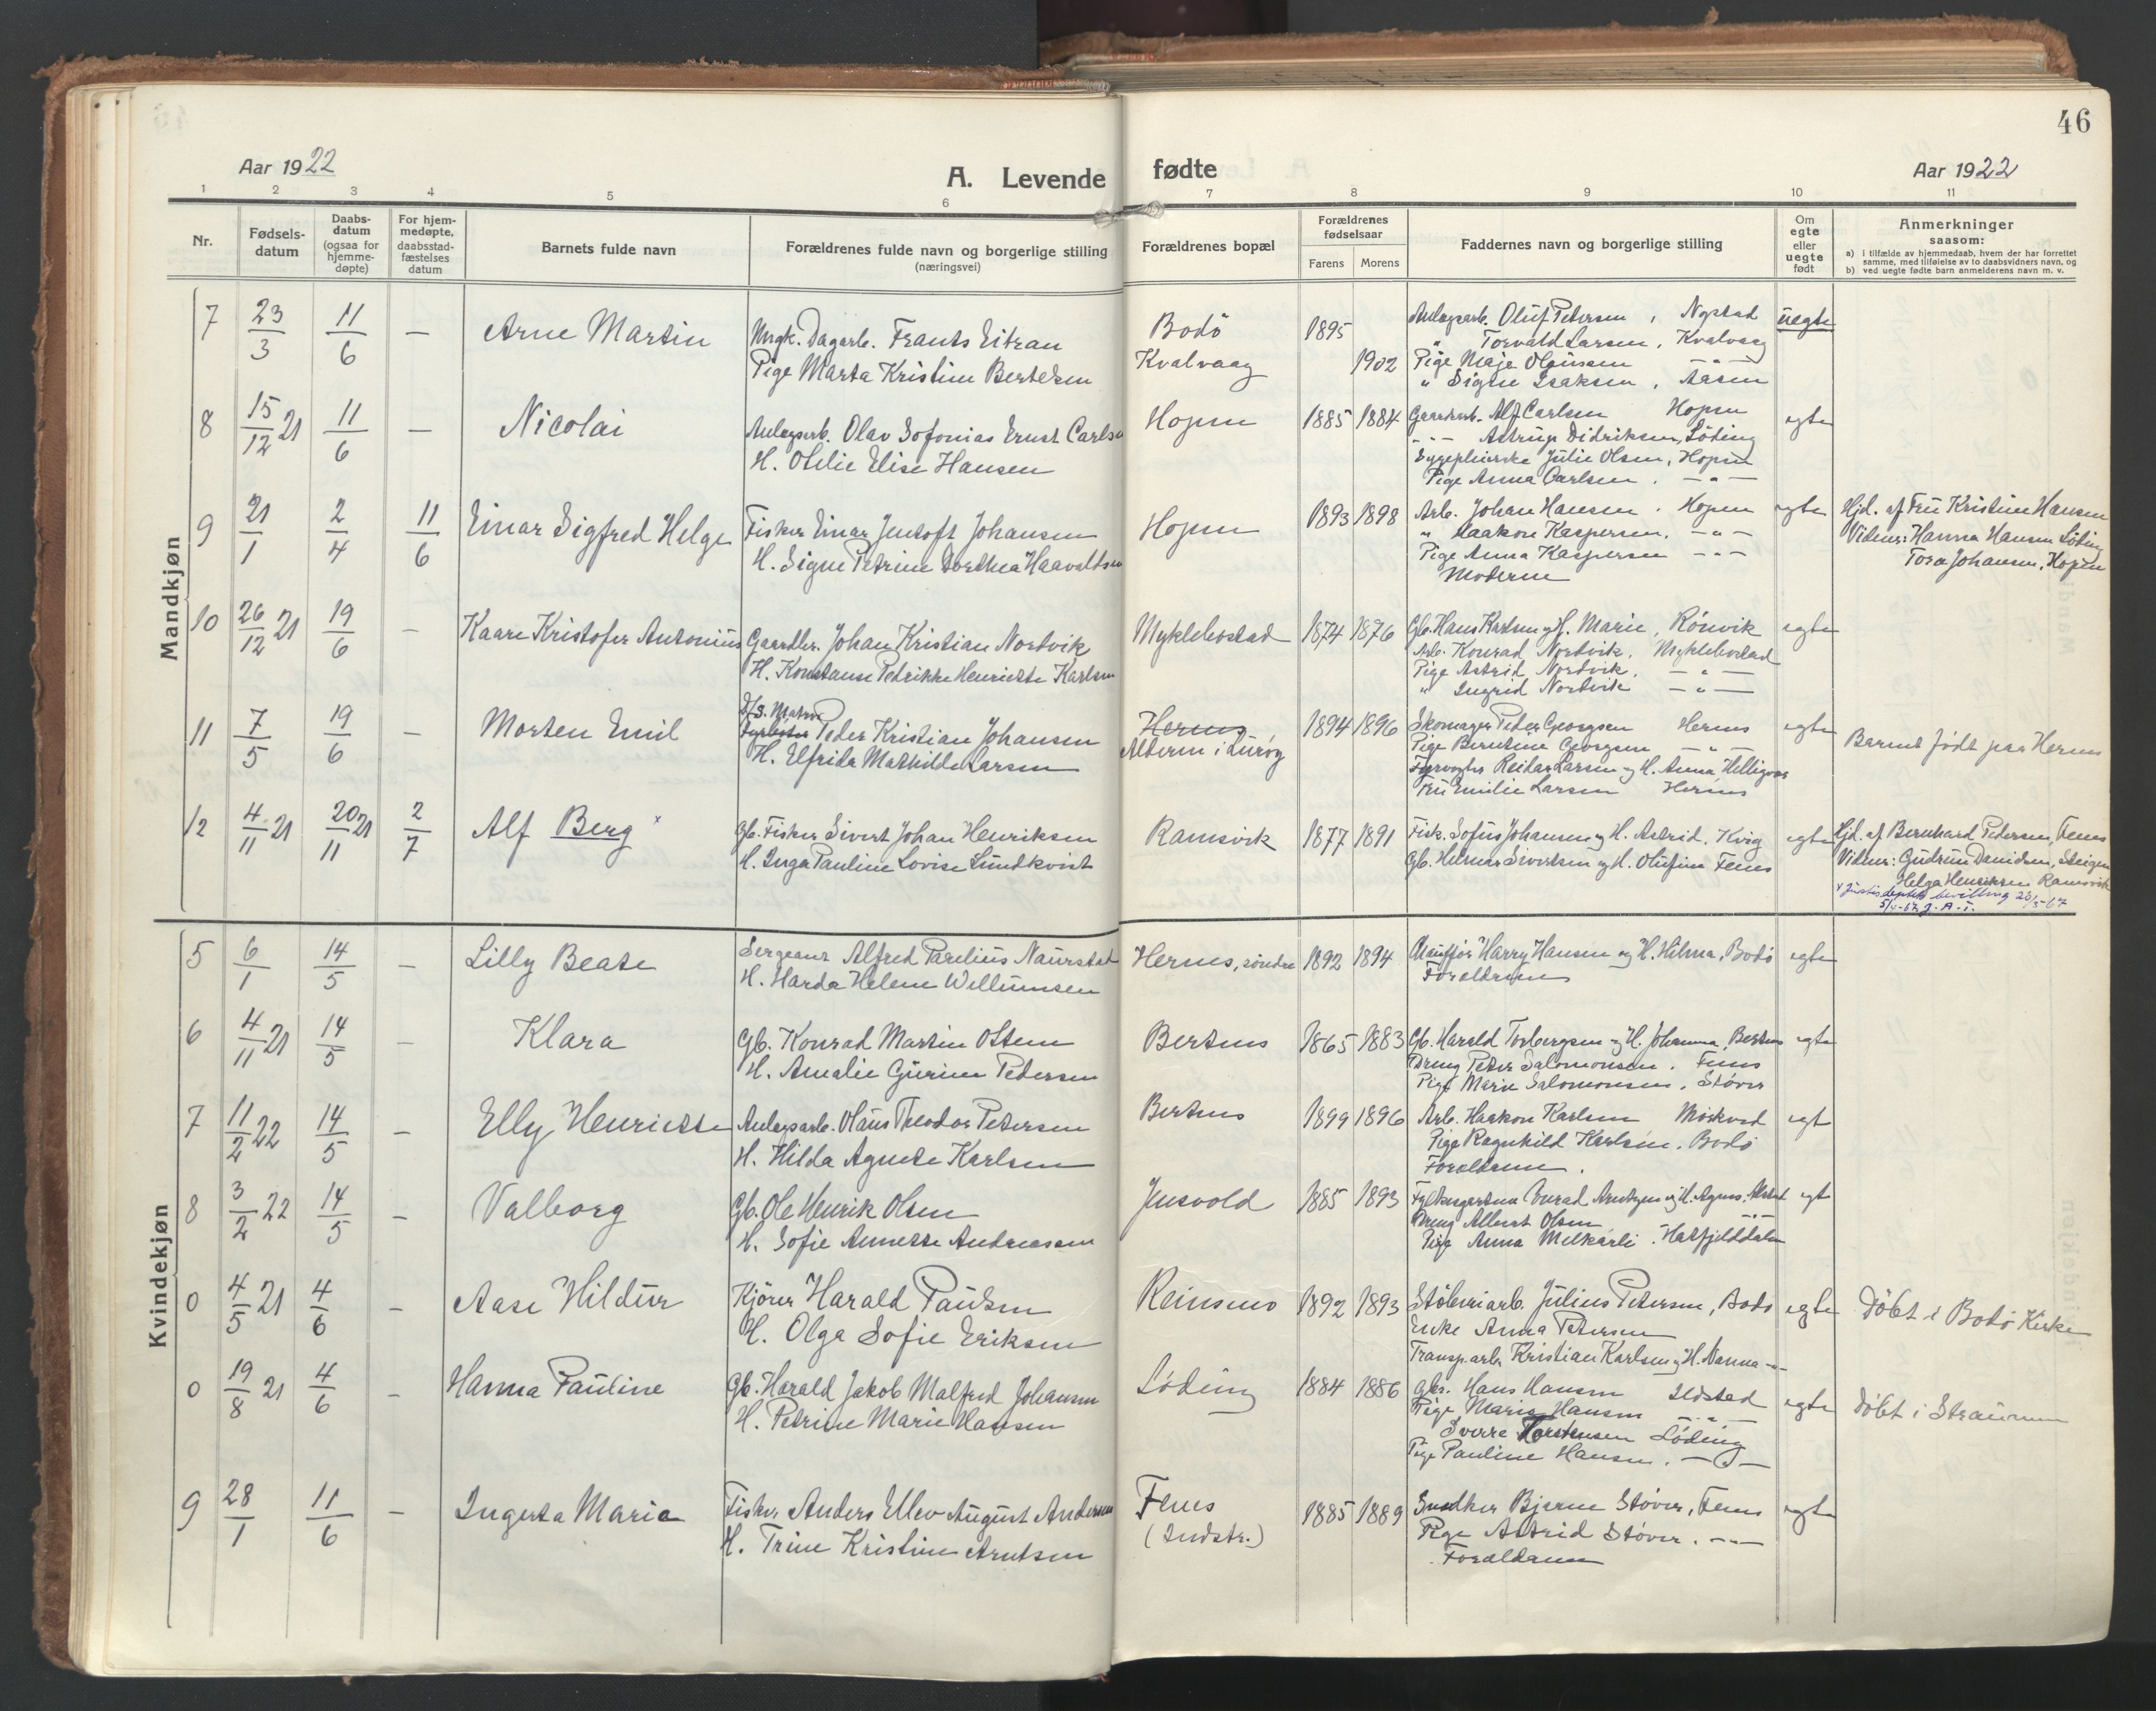 46
Aar 1922
A. Levende fødte
Aar 1922
1 2 3 4 5 6 7 8 9 10 11
Nr.
Fødsels-
datum
Daabs-
datum
(ogsaa for
hjemme-
døpte)
For hjem-
medøpte,
daabsstad-
fæstelses
datum
Barnets fulde navn
Forældrenes fulde navn og borgerlige stilling
(næringsvei)
Forældrenes bopæl
Forældrenes
fødselsaar
Farens Morens
Faddernes navn og borgerlige stilling
Om
egte
eller
uegte
født
Anmerkninger
saasom:
a) i tilfælde av hjemmedaab, hvem der har forrettet
samme, med tilføielse av to daabsvidners navn, og
b) ved uegte fødte barn anmelderens navn m. v.
Mandkjøn
7 23/3 11/6 — Arne Martin
Ungk. Dagarb. Frants Eitran
Pige Marta Kristine Bertelsen
Bodö
Kvalvaag
1895
1902
Anlægsarb. Oluf Petersen, Nystad
" Torvald Larsen, Kvalvaag
Pige Maja Olaussen — " —
" Signe Isaksen, Aasen
uegte
8 15/12 21 11/6 — Nicolai
Anlægsarb. Olav Sofonias Ernst Carlsen
H. Otelie Elise Hansen
Hopen
1885 1884
Gaardarb. Alf Carlsen Hopen
- " - Astrup Didriksen, Löding
Sygepleierske Julie Olsen, Hopen
Pige Anna Carlsen. — " —
egte
9 21/1 2/4 11/6 Einar Sigfred Helge
Fisker Einar Jentoft Johansen
H. Signe Petrine Dorthea Haavaldsen
Hopen
1893 1898
Arb. Johan Hansen. Hopen
" Haakon Kaspersen. — " —
Pige Anna Kaspersen — " —
Moderen
egte
Hjd. af Fru Kristine Hansen
Vidner: Hanna Hansen Löding
Tora Johansen, Hopen
10 26/12 21 19/6 — Kaare Kristofer Antonius
Gaardbr. Johan Kristian Nordvik
H. Konstanse Petrikke Henriette Karlsen
Myklebostad
1874 1876
Gb. Hans Karlsen og H. Marie, Rönvik
Arb. Konrad Nordvik. Myklebostad
Pige Astrid Nordvik. — " —
" Ingrid Nordvik — " —
egte
11 7/5 19/6 — Morten Emil
D/S. Matros
Peder Kristian Johansen
H. Elfrida Mathilde Larsen
Hernes
Alderen i Luröy
1894 1896
Skomager Peder Georgsen Hernes
Pige Berntine Georgsen — " —
Fyrvogter Reidar Larsen og H. Anna, Helligvær
Fru Emilie Larsen Hernes
egte
Barnet født paa Hernes
12 4/11 21 20/11 21 2/7 Alf Berg x
Gb. Fisker Sivert Johan Henriksen
H. Inga Pauline Lovise Lundkvist
Ramsvik
1877 1891
Fisk. Sofus Johansen og H. Astrid. Kvig
Gb. Helmer Sivertsen og H. Olufine Fenes
egte
Hjd. af Bernhard Pedersen, Fenes
Vidner: Gudrun Danielsen, Steigen
Helga Henriksen Ramsvik
x Justisdeptets bevilling 28/3-67
5/4-67 J.A.T.
Kvindekjøn
5 6/1 14/5 — Lilly Beate
Sergeant Alfred Parelius Naurstad
H. Harda Helene Willumsen
Hernes, söndre
1892 1894
Chauffør Harry Hansen og H. Hilma, Bodö
Forældrenes
egte
6 4/11 21 14/5 — Klara
Gb. Konrad Martin Ottem
H. Amalie Gurine Petersen
Bertnes
1865 1883
Gb. Harald Torbergsen og H. Johanna, Bertnes
Dreng Peter Salomonsen. Fenes
Pige Marie Salomonsen, Stöver
egte
7 11/2 22 14/5 — Elly Henriette
Anlægsarb. Olaus Theodor Petersen
H. Hilda Agnete Karlsen
Bertnes
1899 1896
Arb. Haakon Karlsen Mörkved
Pige Ragnhild Karlsen. Bodö
Forældrene.
egt
8 3/2 22 14/5 — Valborg
Gb. Ole Henrik Olsen
H. Sofie Annette Andreasen
Jensvold
1885 1893
H. Agnes.
Dreng Albert Olsen — " —
Pige Anna Melkarli. Hatfjelddalen
egt
0 4/5 21 4/6 — Aase Hildur
Kjörer Harald Paulsen
H. Olga Sofie Eriksen
Reinsmo
1892 1893
Støberiarb. Julius Petersen, Bodö
Enke Anna Petersen
Transp.arb. Kristian Karlsen og H. Nanna — " —
egte
Döbt i Bodö Kirke
0 19/8 21 4/6 — Hanna Pauline
Gb. Harald Jakob Malfred Johansen
H. Petrine Marie Hansen
Löding
1884 1886
Gbr. Hans Hansen Ildstad
Pige Marie Hansen — " —
Sverre Torstensen Löding
Pige Pauline Hansen. — " —
egte
Döbt i Straumen
9 28/1 11/6 — Ingerta Marie
Fisker Anders Ellev August Andersen
H. Trine Kristine Arntsen
Fenes
(Indstr.)
1885 1889
Snedker Bjarne Stöver, Fenes
Pige Astrid Stöver. — " —
Forældrene
egte